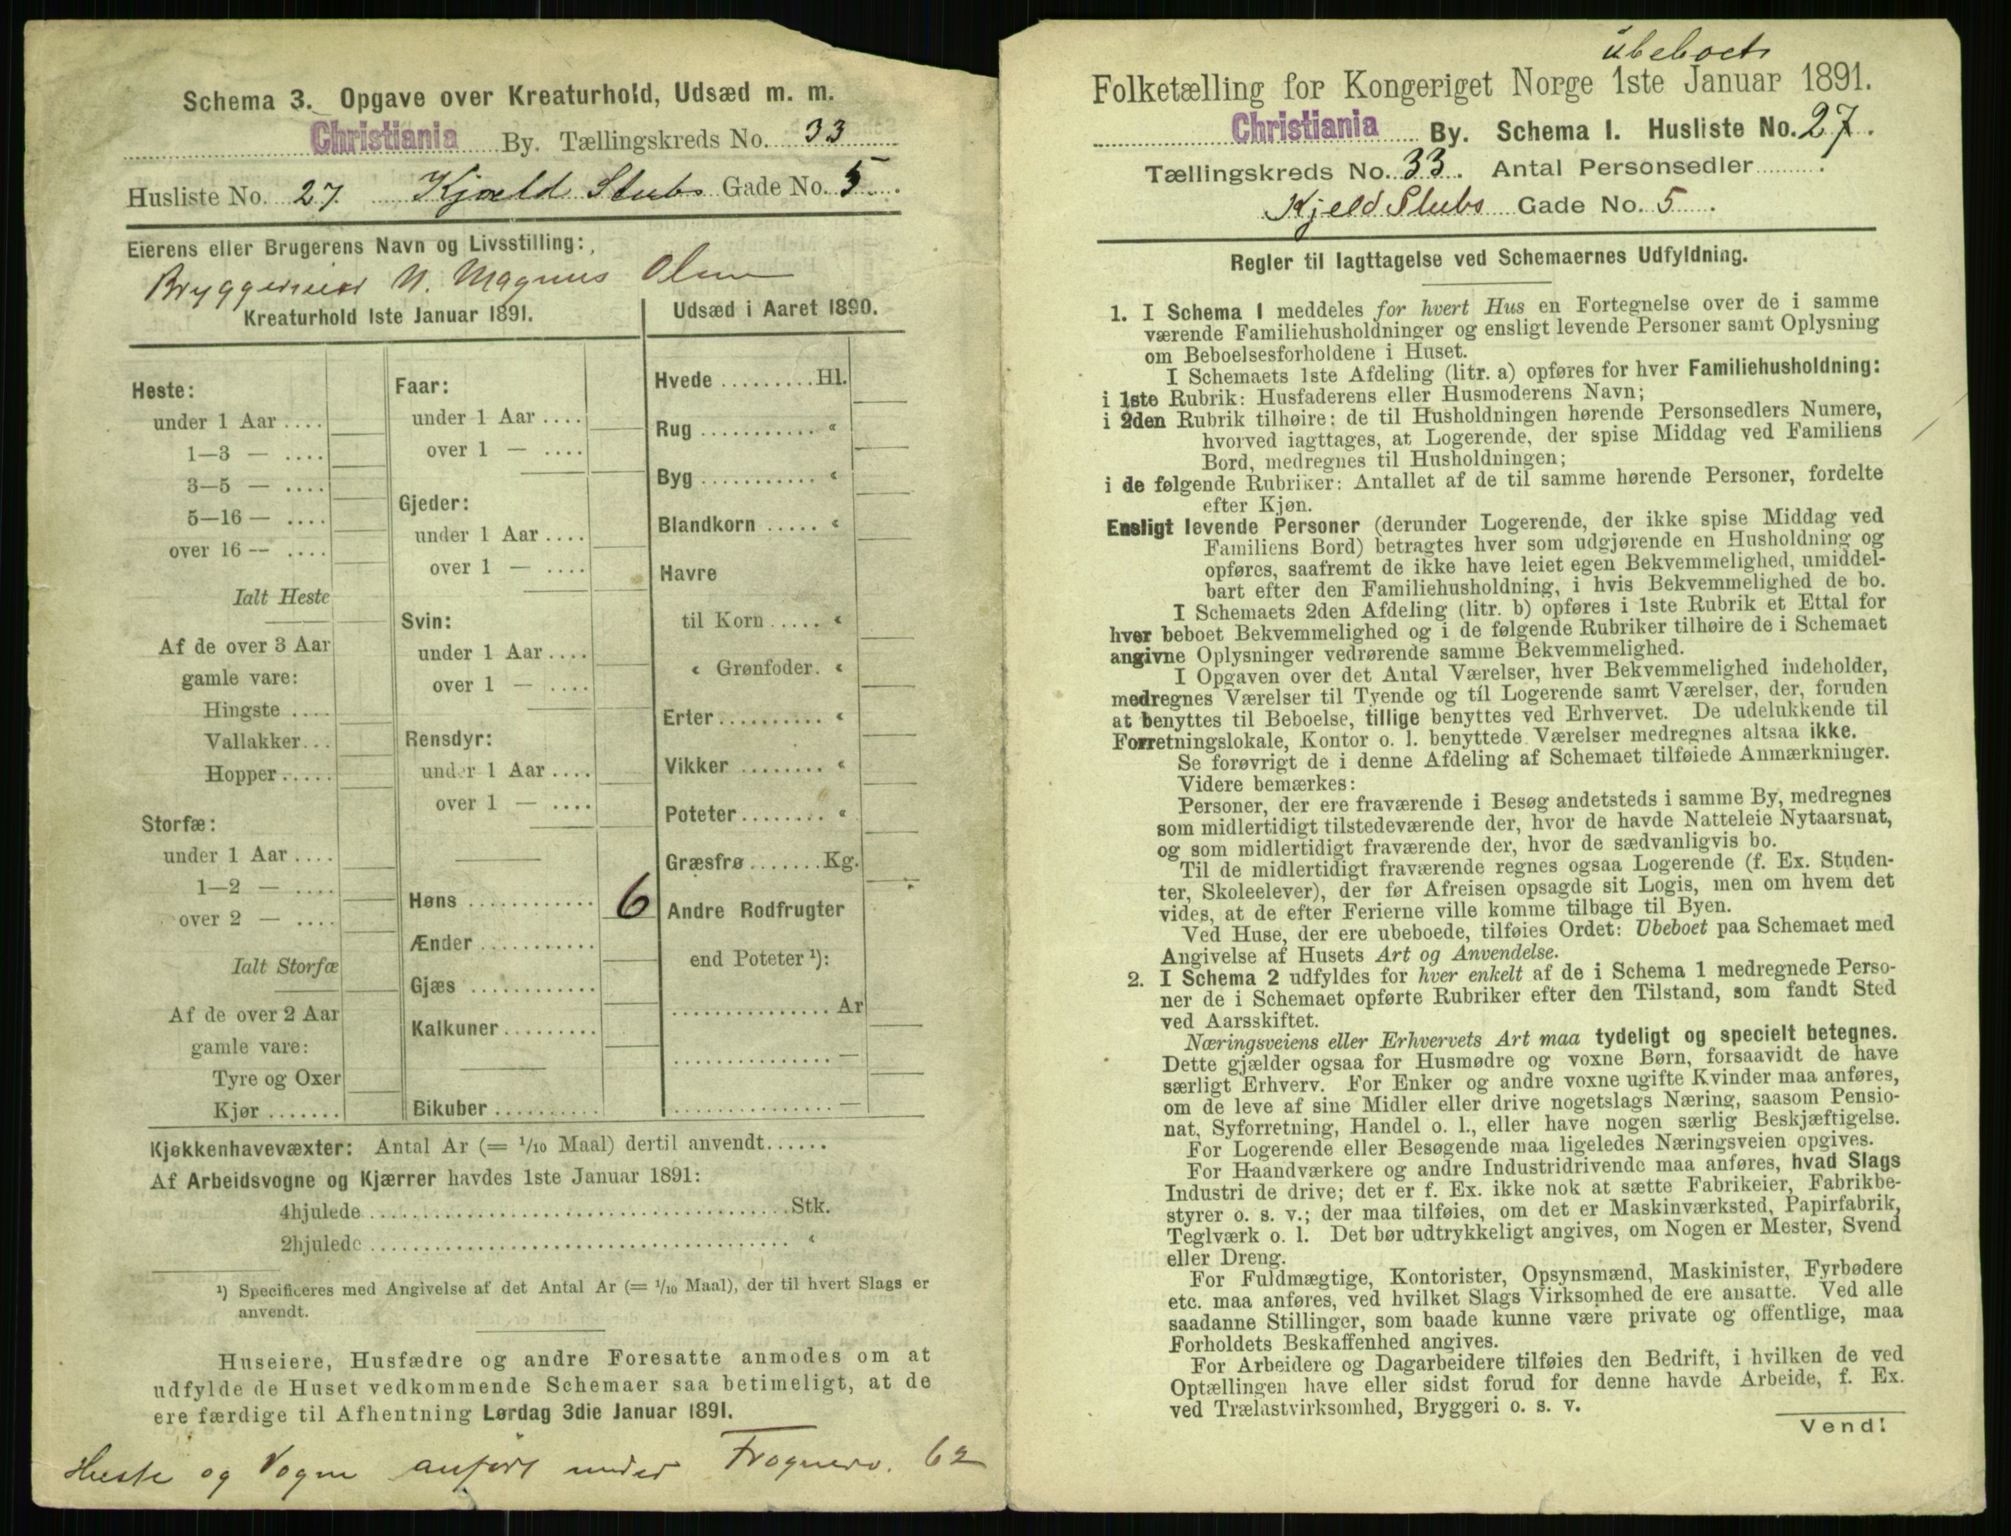 Schema 3. Opgave over Kreaturhold, Udsæd m. m.
Christiania By. Tællingskreds No. 33
Husliste No. 27. Kjæld Stubs Gade No. 5.
Eierens eller Brugerens Navn og Livsstilling:
Bryggerieier N. Magnus Olsen
Kreaturhold 1ste Januar 1891.
Heste:
under 1 Aar ....
1—3 — ....
3—5 — ....
5—16 — ....
over 16 — ....
Ialt Heste
Af de over 3 Aar
gamle vare:
Hingste ....
Vallakker...
Hopper.....
Storfæ:
under 1 Aar ....
1—2 — ....
over 2 — ....
Ialt Storfæ
Af de over 2 Aar
gamle vare:
Tyre og Oxer
Kjør.......
Faar:
under 1 Aar ....
over 1 — ....
Gjeder:
under 1 Aar ....
over 1 — ....
Svin:
under 1 Aar ....
over 1 — ....
Rensdyr:
under 1 Aar ....
over 1 — ....
Høns ............ 6
Ænder ...........
Gjæs ............
Kalkuner.........
Bikuber..........
Udsæd i Aaret 1890.
Hvede .........Hl.
Rug ........... «
Byg ........... «
Blandkorn ..... «
Havre
til Korn ..... «
« Grønfoder. «
Erter.......... «
Vikker ........ «
Poteter........ «
Græsfrø.......Kg.
Andre Rodfrugter
end Poteter ¹):
............... Ar
............... —
............... —
Kjøkkenhavevæxter: Antal Ar (= 1/10 Maal) dertil anvendt......
Af Arbeidsvogne og Kjærrer havdes 1ste Januar 1891:
4hjulede........................................Stk.
2hjulede........................................ «
¹) Specificeres med Angivelse af det Antal Ar (= 1/10 Maal), der til hvert Slags er
anvendt.
Huseiere, Husfædre og andre Foresatte anmodes om at
udfylde de Huset vedkommende Schemaer saa betimeligt, at de
ere færdige til Afhentning Lørdag 3die Januar 1891.
Heste og Vogne anført under Frognerv. 62
Ubeboet
Folketælling for Kongeriget Norge 1ste Januar 1891.
Christiania By. Schema I. Husliste No. 27.
Tællingskreds No. 33. Antal Personsedler ........
Kjeld Stubs Gade No. 5.
Regler til Iagttagelse ved Schemaernes Udfyldning.
1. I Schema 1 meddeles for hvert Hus en Fortegnelse over de i samme
værende Familiehusholdninger og ensligt levende Personer samt Oplysning
om Beboelsesforholdene i Huset.
I Schemaets 1ste Afdeling (litr. a) opføres for hver Familiehusholdning:
i 1ste Rubrik: Husfaderens eller Husmoderens Navn;
i 2den Rubrik tilhøire: de til Husholdningen hørende Personsedlers Numere,
hvorved iagttages, at Logerende, der spise Middag ved Familiens
Bord, medregnes til Husholdningen;
i de følgende Rubriker: Antallet af de til samme hørende Personer, fordelte
efter Kjøn.
Ensligt levende Personer (derunder Logerende, der ikke spise Middag ved
Familiens Bord) betragtes hver som udgjørende en Husholdning og
opføres, saafremt de ikke have leiet egen Bekvemmelighed, umiddel-
bart efter den Familiehusholdning, i hvis Bekvemmelighed de bo.
I Schemaets 2den Afdeling (litr. b) opføres i 1ste Rubrik et Ettal for
hver beboet Bekvemmelighed og i de følgende Rubriker tilhøire de i Schemaet
angivne Oplysninger vedrørende samme Bekvemmelighed.
I Opgaven over det Antal Værelser, hver Bekvemmelighed indeholder,
medregnes Værelser til Tyende og til Logerende samt Værelser, der, foruden
at benyttes til Beboelse, tillige benyttes ved Erhvervet. De udelukkende til
Forretningslokale, Kontor o. l. benyttede Værelser medregnes altsaa ikke.
Se forøvrigt de i denne Afdeling af Schemaet tilføiede Anmærkninger.
Videre bemærkes:
Personer, der ere fraværende i Besøg andetsteds i samme By, medregnes
som midlertidigt tilstedeværende der, hvor de havde Natteleie Nytaarsnat,
og som midlertidigt fraværende der, hvor de sædvanligvis bo.
Til de midlertidigt fraværende regnes ogsaa Logerende (f. Ex. Studen-
ter, Skoleelever), der før Afreisen opsagde sit Logis, men om hvem det
vides, at de efter Ferierne ville komme tilbage til Byen.
Ved Huse, der ere ubeboede, tilføies Ordet: Ubeboet paa Schemaet med
Angivelse af Husets Art og Anvendelse.
2. I Schema 2 udfyldes for hver enkelt af de i Schema 1 medregnede Perso-
ner de i Schemaet opførte Rubriker efter den Tilstand, som fandt Sted
ved Aarsskiftet.
Næringsveiens eller Erhvervets Art maa tydeligt og specielt betegnes.
Dette gjælder ogsaa for Husmødre og voxne Børn, forsaavidt de have
særligt Erhverv. For Enker og andre voxne ugifte Kvinder maa anføres,
om de leve af sine Midler eller drive nogetslags Næring, saasom Pensio-
nat, Syforretning, Handel o. l., eller have nogen særlig Beskjæftigelse.
For Logerende eller Besøgende maa ligeledes Næringsveien opgives.
For Haandværkere og andre Industridrivende maa anføres, hvad Slags
Industri de drive; det er f. Ex. ikke nok at sætte Fabrikeier, Fabrikbe-
styrer o. s. v.; der maa tilføies, om det er Maskinværksted, Papirfabrik,
Teglværk o. l. Det bør udtrykkeligt angives, om Nogen er Mester, Svend
eller Dreng.
For Fuldmægtige, Kontorister, Opsynsmænd, Maskinister, Fyrbødere
etc. maa anføres, ved hvilket Slags Virksomhed de ere ansatte. Ved alle
saadanne Stillinger, som baade kunne være private og offentlige, maa
Forholdets Beskaffenhed angives.
For Arbeidere og Dagarbeidere tilføies den Bedrift, i hvilken de ved
Optællingen have eller sidst forud for denne havde Arbeide, f. Ex.
ved Trælastvirksomhed, Bryggeri o. s. v.
Vend!